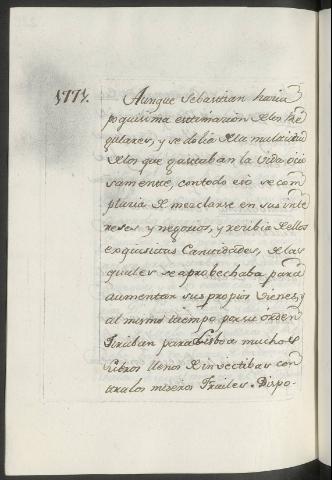 1771. Aunque Sebastian hacia
poquisima estimacion de los Re
gulares, y se dolia de la multitud
de los que gastaban la vida ocio
samente, con todo eso se com
placia de mezclarse en sus inte
reses y negocios, y recibia de ellos
exquisitas Cantidades, de las
quales se aprobechaba para
aumentar sus propios vienes, y
al mismo tiempo por su orden
para Lisboa muchos
Libros llenos de invectibas con
tra los miseros Frailes. Dispo-